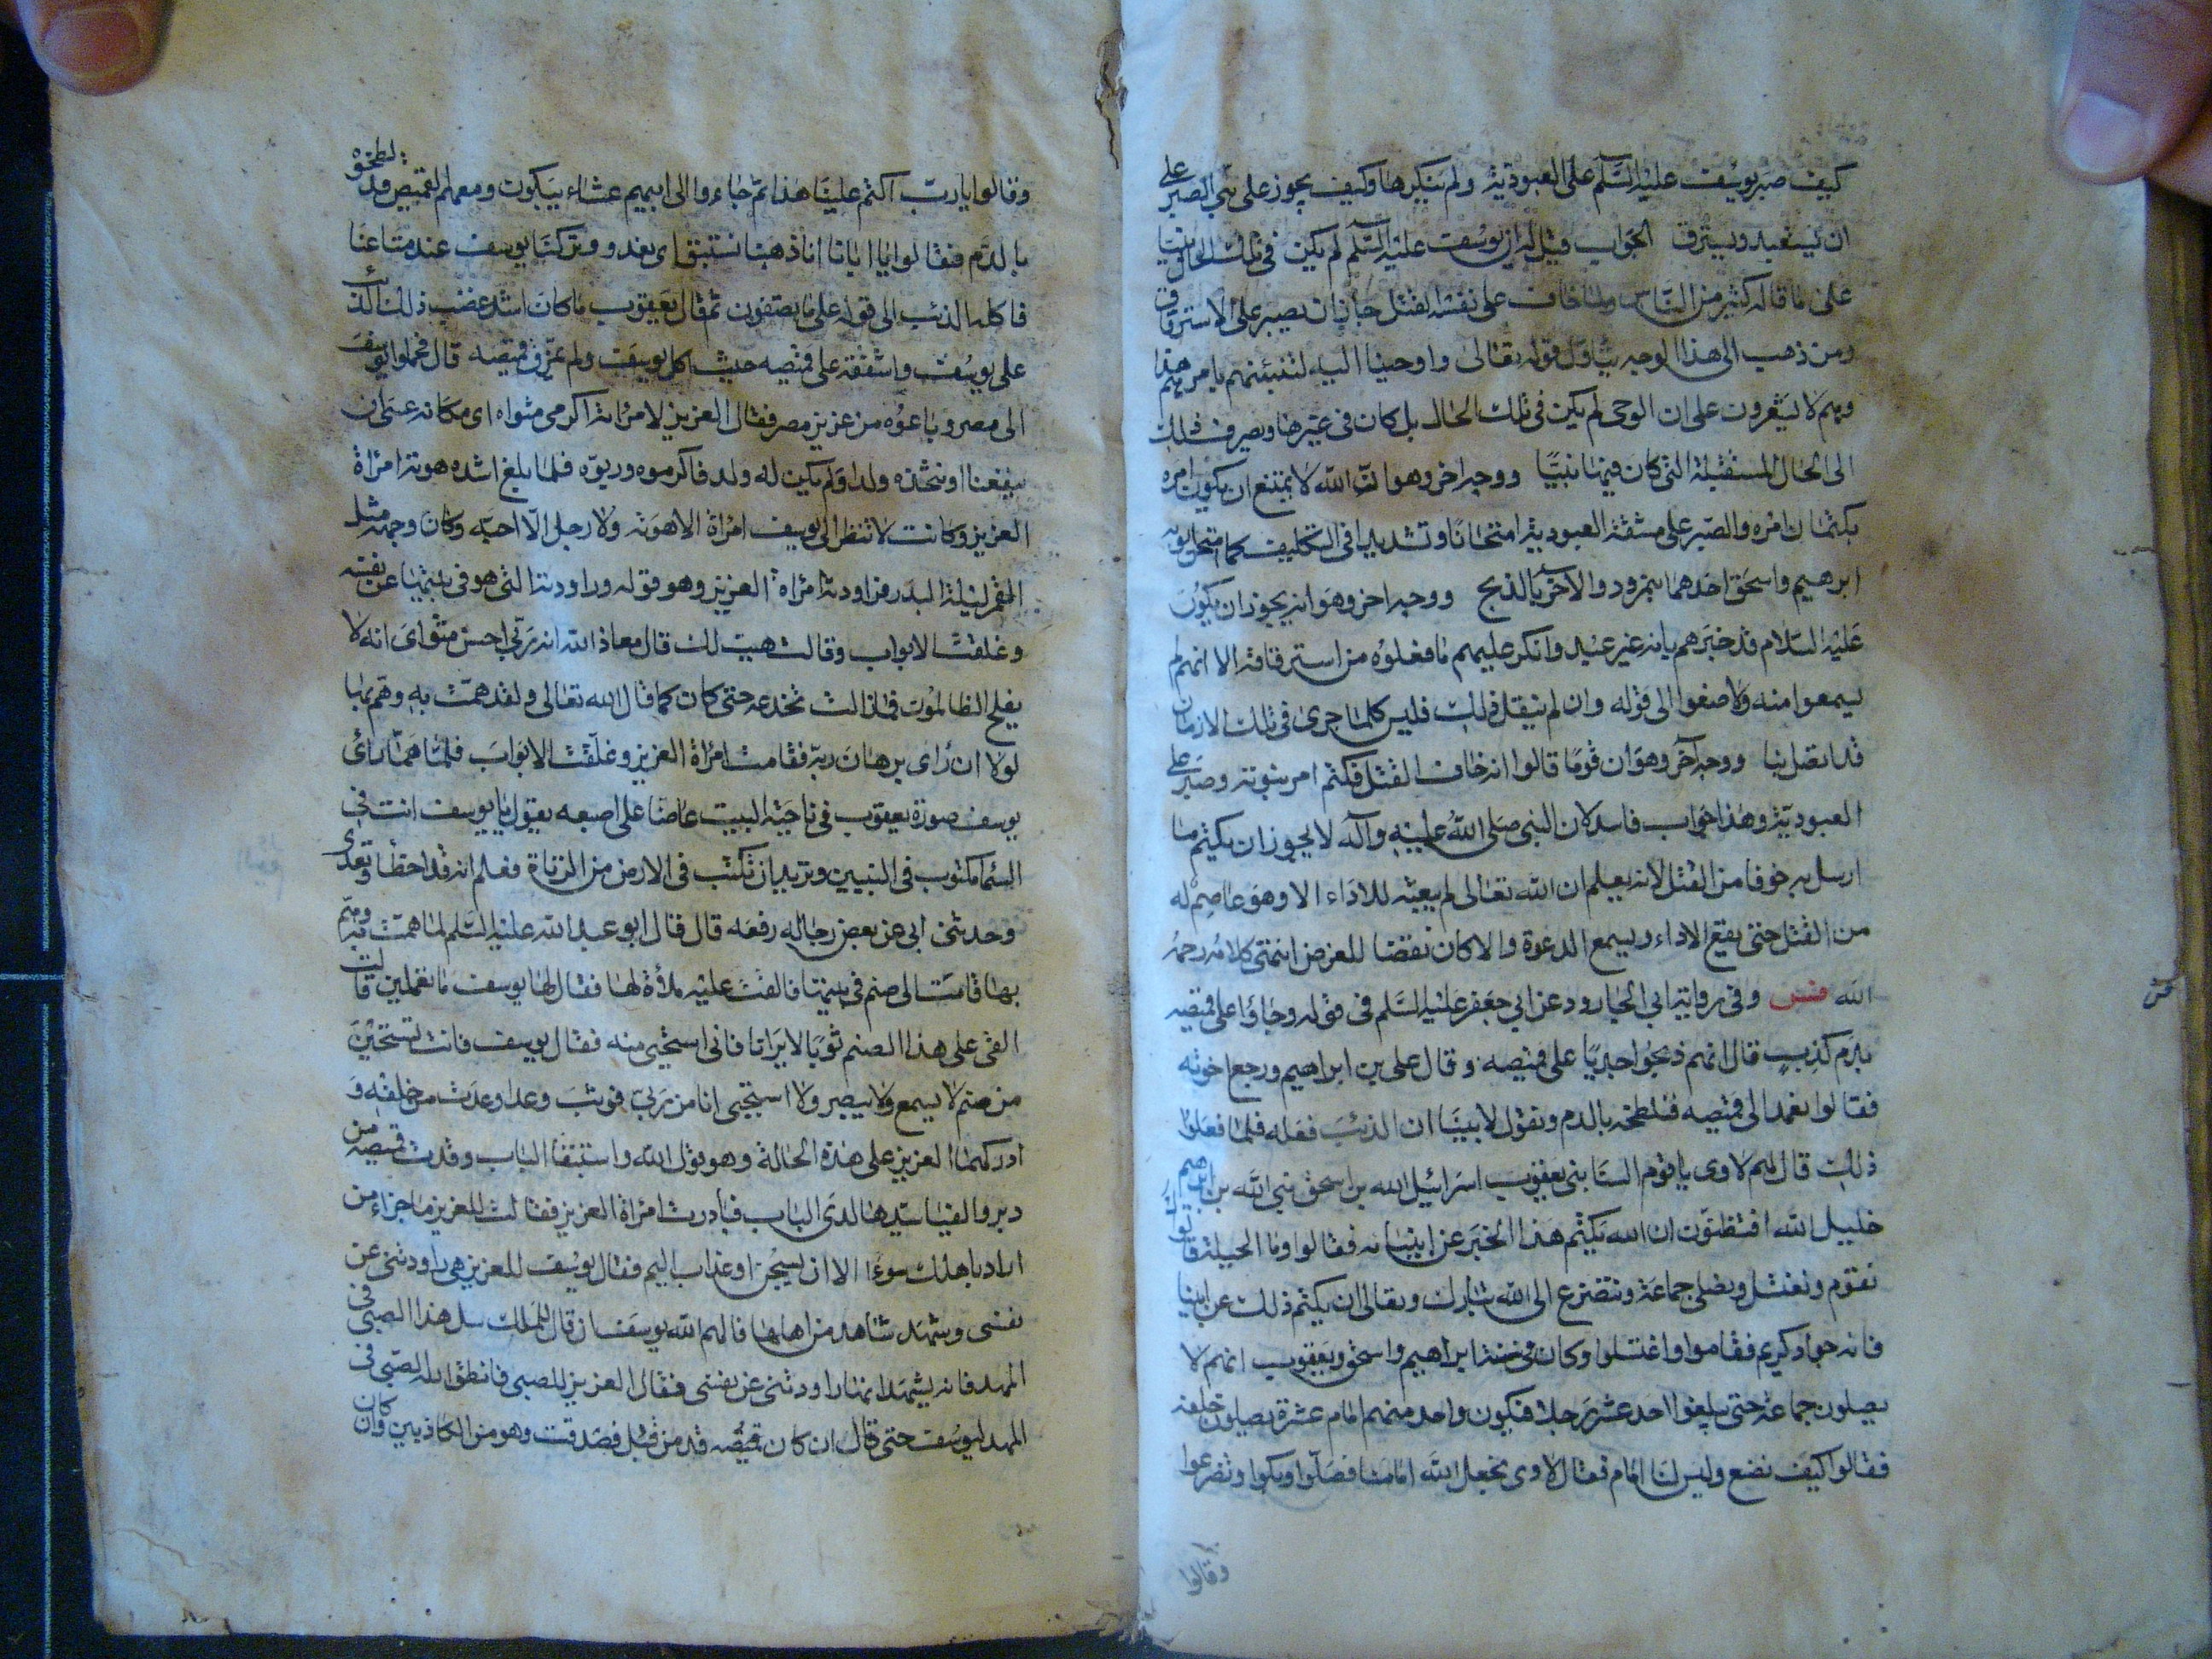 كيف صبر يوسف عليه السلم على العبودية ولم ينكرها وكيف يجوز على نبي الصبر على
ان يستعبد ويسترق الجواب قيل له ان يوسف عليه السلم لم يكن في تلك الحال نبيا
على ما قاله كثير من الناس ولما خاف على نفسه القتل جاز ان يصبر على الاسترقاق
ومن ذهب الى هذا الوجه يتاول قوله تعالى واوحينا اليه لتنبئنهم بامرهم هذا
وهم لا يشعرون على ان الوحي لم يكن في تلك الحال بل كان في غيرها ويصرف ذلك
الى الحال المستقبلة التي كان فيها نبيا ووجه اخر وهو ان الله لا يمتنع ان يكون امره
بكتمان امره والصبر على مشقة العبودية امتحانا وتشديدا في التكليف كما امتحن ابويه
ابرهيم واسحق احدهما بنمرود والاخر بالذبح ووجه اخر وهو انه يجوز ان يكون
عليه السلام قد خبرهم بانه غير عبد وانكر عليهم ما فعلوه من استرقاقه الا انهم لم
يسمعوا منه ولا اصغوا الى قوله وان لم ينقل ذلك فليس كلما جرى في تلك الازمان
قد اتصل بنا ووجه آخر وهو ان قوما قالوا انه خاف القتل فكتم امر نبوته وصبر على
العبودية وهذا جواب فاسد لان النبي صلى الله عليه وآله لا يجوز ان يكتم ما
ارسل به خوفا من القتل لانه يعلم ان الله تعالى لم يبعثه للاداء الا وهو عاصم له
من القتل حتى يقع الاداء ويسمع الدعوة والا كان نقضا للغرض انتهى كلامه رحمه
الله فس وفي رواية ابي الجارود عن ابي جعفر عليه السلم في قوله وجاؤا على قميصه
بدم كذب قال انهم ذبحوا جديا على قميصه وقال علي بن ابراهيم ورجع اخوته
فقالوا نعمد الى قميصه فنلطخه بالدم ونقول لابينا ان الذئب فعله فلما فعلوا
ذلك قال لهم لاوى يا قوم السنا بني يعقوب اسرائيل الله بن اسحق نبي الله بن ابرهيم
خليل الله افتظنون ان الله يكتم هذا الخبر عن انبيائه فقالوا وما الحيلة قال
نقوم ونغتسل ونصلي جماعة ونتضرع الى الله تبارك وتعالى ان يكتم ذلك عن ابينا
فانه جواد كريم فقاموا واغتسلوا وكان في سنة ابراهيم واسحق ويعقوب انهم لا
يصلون جماعة حتى يبلغوا احد عشر رجلا فيكون واحد منهم امام عشرة يصلون خلفه
فقالوا كيف نصنع وليس لنا امام فقال لاوى نجعل الله امامنا فصلوا وبكوا وتضرعوا
وقالوا
وقالوا يا رب اكتم علينا هذا ثم جاءوا الى ابيهم عشاء يبكون ومعهم القميص وقد لطخوه
بالدم فقالوا يا ابانا انا ذهبنا نستبق اى نعدو وتركنا يوسف عند متاعنا
فاكله الذئب الى قوله على ما تصفون ثم قال يعقوب ما كان اشد غضب ذلك الذئب
على يوسف واشفقه على قميصه حيث اكل يوسف ولم يمزق قميصه قال فحملوا يوسف
الى مصر وباعوه من عزيز مصر فقال العزيز لامراته اكرمى مثواه اى مكانه عسى ان
ينفعنا او نتخذه ولدا ولم يكن له ولد فاكرموه وربوه فلما بلغ اشده هوته امراة
العزيز وكانت لا تنظر الى يوسف امراة الا هوته ولا رجل الا احبه وكان وجهه مثل
القمر ليلة البدر فراودته امراة العزيز وهو قوله وراودته التي هو في بيتها عن نفسه
وغلقت الابواب وقالت هيت لك قال معاذ الله انه ربي احسن مثواى انه لا
يفلح الظالمون فما زالت تخدعه حتى كان كما قال الله تعالى ولقد همت به وهم بها
لولا ان راى برهان ربه فقامت امراة العزيز وغلقت الابواب فلما هما راى
يوسف صورة يعقوب في ناحية البيت عاضا على اصبعه يقول يا يوسف انت في
السماء مكتوب في النبيين وتريد ان تكتب في الارض من الزناة فعلم انه قد اخطا وتعدى
وحدثني ابي عن بعض رجاله رفعه قال قال ابو عبد الله عليه السلم لما همت به وهم
بها قامت الى صنم في بيتها فالقت عليه ملاءة لها فقال لها يوسف ما تعملين قالت
القى على هذا الصنم ثوبا لا يرانا فاني استحيي منه فقال يوسف فانت تستحين
من صنم لا يسمع ولا يبصر ولا استحيي انا من ربي فوثب وعدا وعدت من خلفه و
ادركهما العزيز على هذه الحالة وهو قول الله واستبقا الباب وقدت قميصه من
دبر والفيا سيدها لدى الباب فبادرت امراة العزيز فقالت للعزيز ما جزاء من
اراد باهلك سوءا الا ان يسجن او عذاب اليم فقال يوسف للعزيز هي راودتني عن
نفسى وشهد شاهد من اهلها فالهم الله يوسف ان قال للملك سل هذا الصبي في
المهد فانه يشهد انها راودتني عن نفسى فقال العزيز للصبي فانطق الله الصبي في
المهد ليوسف حتى قال ان كان قميصه قد من قبل فصدقت وهو من الكاذبين وان كان